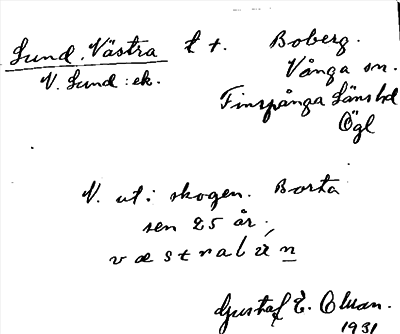 Lund, Västra t +. Boberg.
N. Lund: ek. Vånga sn.
Finspånga Länshd
Ögl
N. ut i skogen. Borta
sen 25 år.
væstralún
Gustaf E.
1931